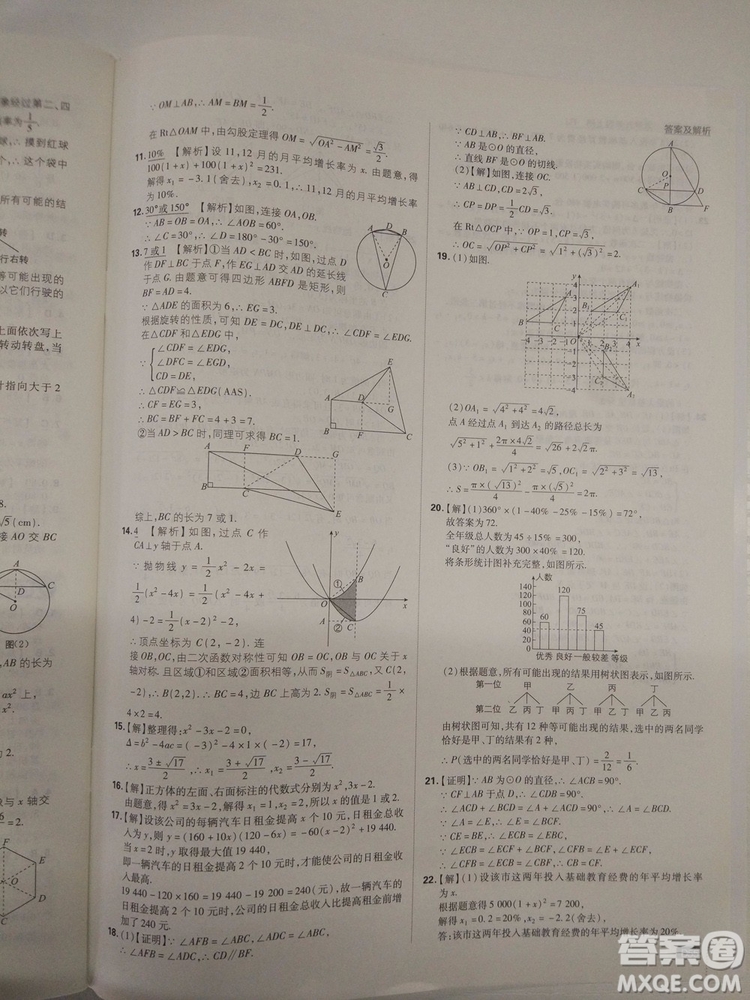 像经过第二、四
概率为1/5.
球，摸到红球
∴这个袋中
所有可能的结
行右转
等可能出现的
以它们行驶的
上面依次写上
转动转盘，当
针指向大于2
√5(cm)
接AO交BC
图(2)
AB的长为
ax²上,
与x轴交
∵OM⊥AB,∴AM=BM=1/2.
在Rt△OAM中,由勾股定理得OM=√(OA²-AM²)=√3/2.
11.10% 【解析】设11,12月的月平均增长率为x.由题意,得
100(1+x)+100(1+x)²=231.
解得x₁=-3.1(舍去),x₂=0.1,∴11,12月的月平均增长率
为10%.
12.30°或150° 【解析】如图,连接OA,OB.
∵AB=OB=OA,∴∠AOB=60°.
∴∠C=30°,∴∠D=180°-30°=150°.
13.7或1 【解析】①当AD<BC时,如图,过点D
作DF⊥BC于点F,作EG⊥AD交AD的延长线
于点G.由题意可得四边形ABFD是矩形,则
BF=AD=4.
∵△ADE的面积为6,∴EG=3.
根据旋转的性质,可知DE=DC,DE⊥DC,∴∠CDF=∠EDG.
在△CDF和△EDG中,
∠CDF=∠EDG,
∠DFC=∠EGD,
CD=DE,
∴△CDF≌△EDG(AAS).
∴CF=EG=3.
∴BC=BF+FC=4+3=7.
②当AD>BC时,同理可求得BC=1.
综上,BC的长为7或1.
14.4 【解析】如图,过点C作
CA⊥y轴于点A.
∵抛物线y=1/2x²-2x=
1/2(x²-4x)=1/2(x²-4x+
4)-2=1/2(x-2)²-2,
∴顶点坐标为C(2,-2).连
接OB,OC,由二次函数对称性可知OB=OC,OB与OC关于x
轴对称.且区域①与区域②面积相等,从而S阴=S△ABC,又C(2,
-2),∴B(2,2).∴BC=4,BC边上高为2.∴S阴=S△ABC=1/2×
4×2=4.
15.【解】整理得:x²-3x-2=0,
Δ=b²-4ac=(-3)²-4×1×(-2)=17,
∴x=(3±√17)/2,∴x₁=(3+√17)/2,x₂=(3-√17)/2.
16.【解】正方体的左面,右面标注的代数式分别为x²,3x-2.
由题意,得x²=3x-2,解得x₁=1,x₂=2,所以x的值是1或2.
17.【解】设该公司的每辆汽车日租金提高x个10元时,日租金收
入为y元,则y=(160+10x)(120-6x)=-60(x-2)²+19 440.
当x=2时,y取得最大值19 440,
即一辆汽车的日租金提高2个10元时,才能使公司的日租金收
入最高.
19 440-120×160=19 440-19 200=240(元),故一辆汽车的
日租金提高2个10元时,公司的日租金总收入比提高租金前增
加了240元.
18.(1)【证明】∵∠AFB=∠ABC,∠ABC=∠ADC,
∴∠AFB=∠ADC,∴CD∥BF.
答案及解析
∵CD⊥AB,∴AB⊥BF.
∵AB是⊙O的直径,
∴直线BF是⊙O的切线.
(2)【解】如图,连接OC.
∵AB⊥CD,CD=2√3,
∴CP=DP=1/2CD=√3.
在Rt△OCP中∵OP=1,CP=√3,
∴OC=√(OP²+CP²)=√(1²+(√3)²)=2.
19.(1)如图.
(2)OA₁=√(4²+4²)=4√2,
点A经过点A₁到达A₂的路径总长为
√(5²+1²)+(2π×4√2)/4=√26+2√2π.
(3)∵OB₁=√(1²+2²)=√5,OC₁=√(2²+3²)=√13,
∴S=π×(√13)²/4-π×(√5)²/4=2π.
20.【解】(1)360°×(1-40%-25%-15%)=72°,
故答案为72.
全年级总人数为45÷15%=300,
“良好”的人数为300×40%=120,
将条形统计图补充完整,如图.
人数
140
120
100
80
60
40
20
0
60 120 75 45
优秀 良好 一般 较差 等级
(2)根据题意,所有可能出现的结果用树状图表示,如图.
第一位 甲 乙 丙 丁
第二位 乙丙丁 甲丙丁 甲乙丁 甲乙丙
由树状图可知,共有12种等可能出现的结果,选中的两名同学
恰好是甲、丁的结果有2种,
∴P(选中的两名同学恰好是甲、丁)=2/12=1/6.
21.【证明】∵AB为⊙O的直径,∴∠ACB=90°.
∵CF⊥AB于点D,∴∠ADC=90°.
∴∠ACD+∠BCD=∠A+∠ACD=90°,∴∠BCD=∠A.
∵∠A=∠E,∴∠BCF=∠E.
∵CE=BE,∴∠ECB=∠EBC.
∵∠ECB=∠ECF+∠FCB,∠EBC=∠E+∠ECF,
∴∠ECF=∠EBF.
22.【解】(1)设该市这两年投入基础教育经费的年平均增长率
为x.
根据题意得5 000(1+x)²=7 200,
解得x₁=0.2=20%,x₂=-2.2(舍去).
答:该市这两年投入基础教育经费的年平均增长率为20%.
答案卷
MXQE.COM